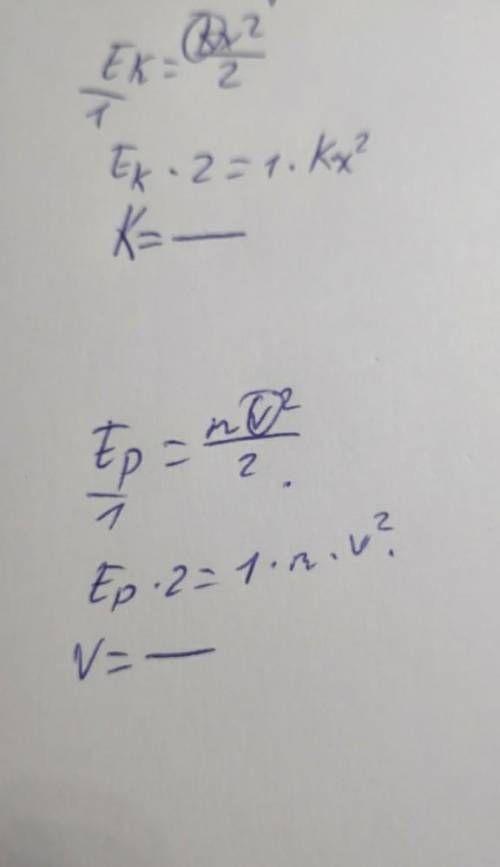 Eк/1 = кx²/2
Eк · 2 = 1 · Kx²
K = —
Ep/1 = mv²/2.
Ep · 2 = 1 · m · v².
V = —